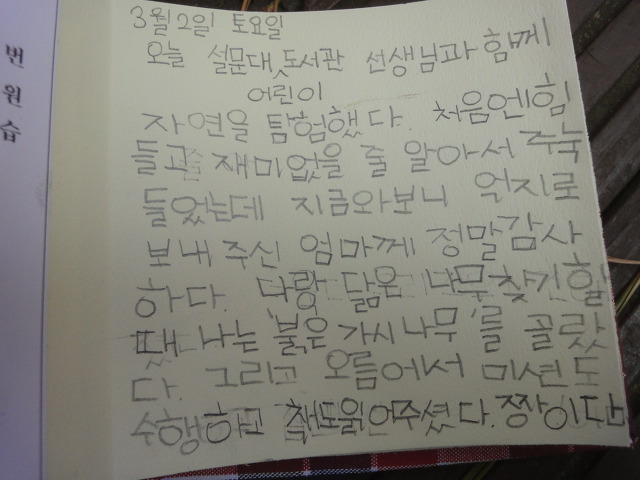 번
원
습
3월 2일 토요일
오늘 설문대 어린이 도서관 선생님과 함께
자연을 탐험했다. 처음엔 힘
들고 재미없을 줄 알아서 주눅
들었는데 지금와보니 억지로
보내주신 엄마께 정말감사
하다. 다랑 닮은 나무찾기할
때 나는 '붉은 가시나무'를 골랐
다. 그리고 오름에서 미션도
수행하고 책도읽어주셨다. 짱이담